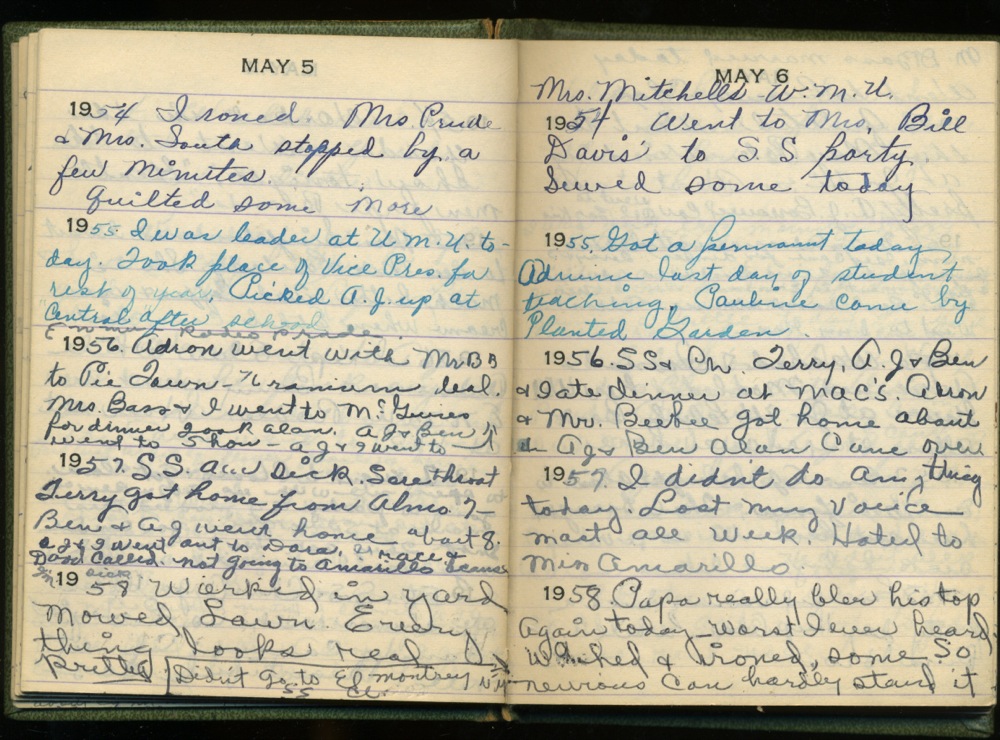 MAY 5
1954 I roned. Mrs. Prude
& Mrs. South stopped by a
few minutes.
Quilted some more
1955 I was leader at W.M.U. to-
day. Took place of Vice Pres. for
rest of year. Picked A.J. up at
Central after school
1956. Adron went with Mr BB
to Pie Town - Uranium deal.
Mrs. Bass & I went to
for dinner took alan. A J & Ben
went to show - a J & I went to
1957. S.S. all sick. Sore throat
Terry got home from Almo. 7-
Ben & A J went home about 8.
a J & I went out to Dora. mace &
Dood called. not going to Amarillo because
I'm sick
1958 Worked in yard
Mowed Lawn. Every
thing looks real
pretty Didn't go to El montrey N.M
SS
MAY 6
Mrs. Mitchells W.M.U.
1954 Went to Mrs. Bill
Davis' to S.S party.
Sewed some today
1955 Got a permanut today
Adrune last day of student
teaching. Pauline come by
Planted Garden.
1956. SS & Ch. Terry, A.J & Ben
& I ate dinner at Mac's. Adron
& Mr. Beebee got home about
A J & Ben Alan Came over
1957. I didn't do any thing
today. Lost my voice
most all week. Hated to
miss Amarillo.
1958. Papa really blew his top
again today - worst I ever heard
Washed & ironed, some. So
nervious can hardly stand it